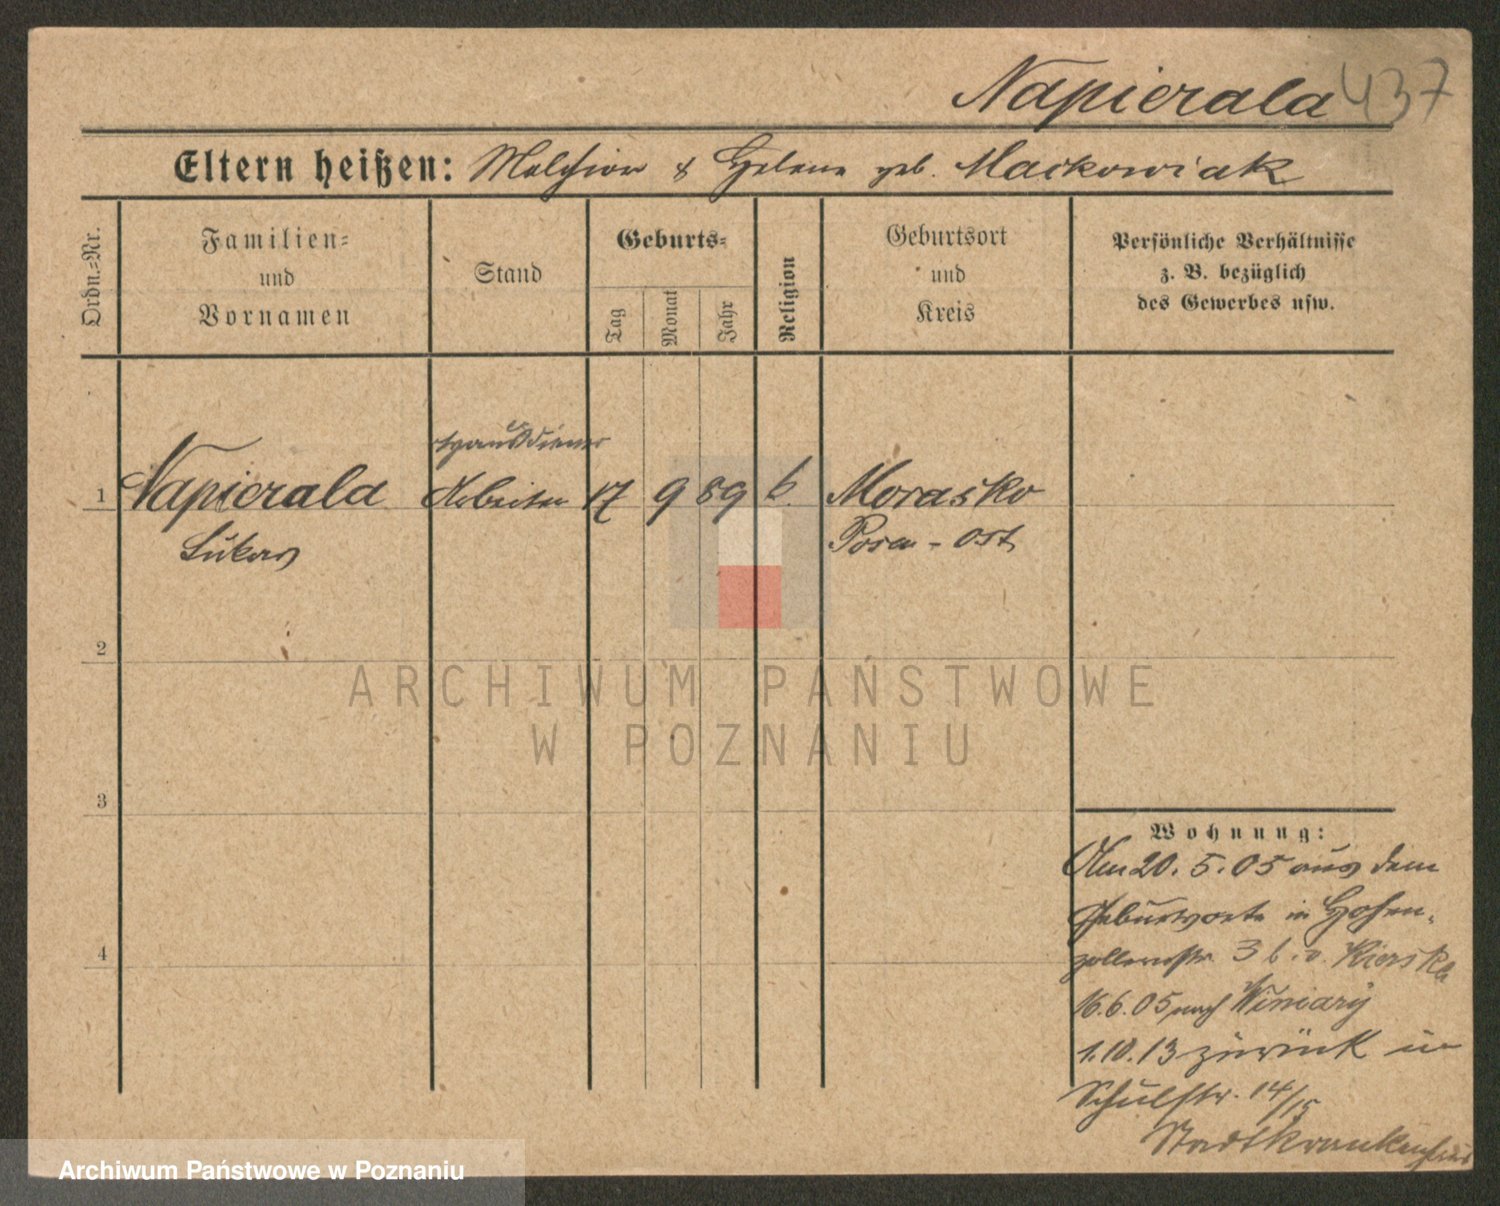 Napierala 437
Eltern heißen: Melchior & Helene geb. Maćkowiak
Ordn.-Nr.
Familien-
und
Vornamen
Stand
Geburts-
Tag
Monat
Jahr
Religion
Geburtsort
und
Kreis
Persönliche Verhältnisse
z. B. bezüglich
des Gewerbes usw.
Hausdiener
1 Napierala Arbeiter 17 9 89 k. Morasko
Lukas Posen-Ost
2
3
4
ARCHIWUM PAŃSTWOWE
W POZNANIU
Wohnung:
Am 20. 5. 05 aus dem
Geburtsorte in Hohen-
zollernstr. 3 b. v. Kierska
16.6.05 nach Winiary
1.10.13 zurück in
Schulstr. 14/15
Stadtkrankenhaus
Archiwum Państwowe w Poznaniu